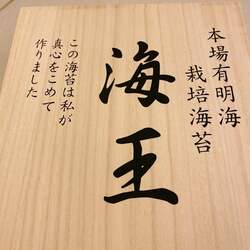 本場有明海
栽培海苔
海王
この海苔は私が
真心をこめて
作りました